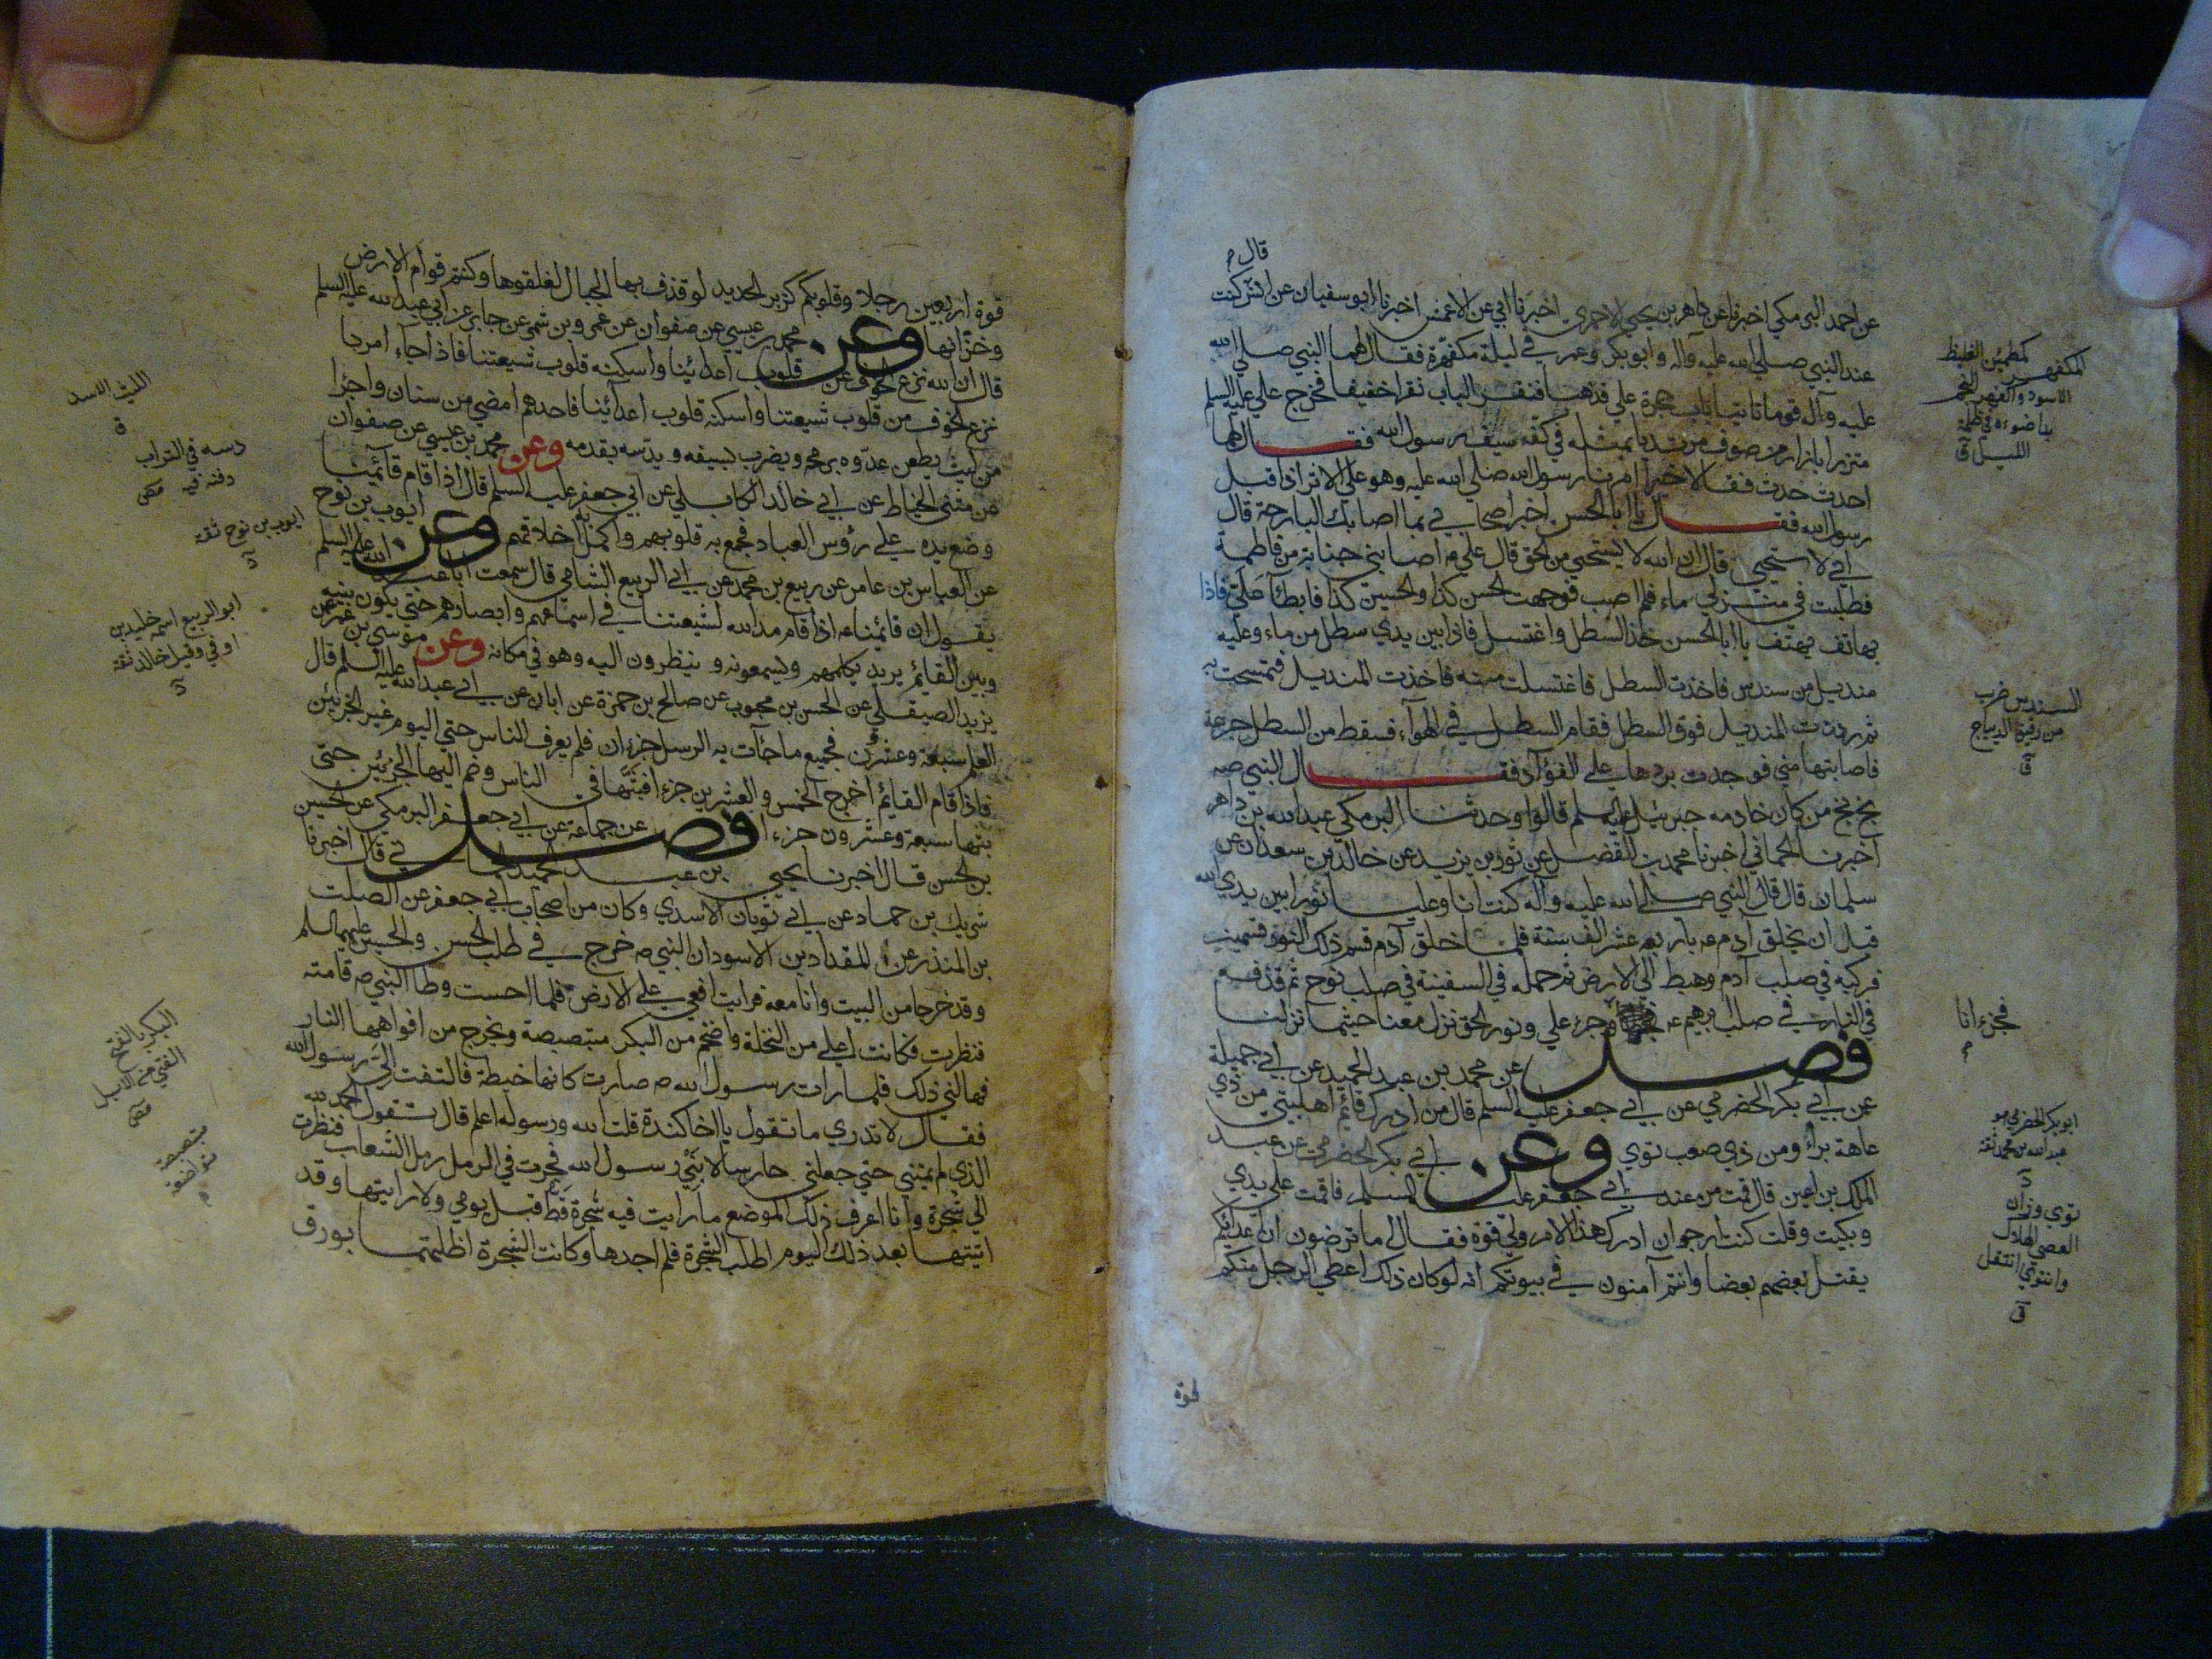 قال م
عن احمد البرمكي اخبرنا عن داهر بن يحيى الاحمري اخبرنا ابي عن الاعمش اخبرنا ابو سفيان عن انس كنت
عند النبي صلى الله عليه وآله وابو بكر وعمر في ليلة مكفهرة فقال لهما النبي صلى الله
عليه وآله قوما فأتيا باب حجرة علي فذهبا فنقر الباب نقرا خفيفا فخرج علي عليه السلم
متزرا بازار من صوف مرتديا بمثله في كفه سيف رسول الله فقال لهما
احدث حدث فقالا خيرا امرنا رسول الله صلى الله عليه وهو على الاثر اذ اقبل
رسول الله فقال يا ابا الحسن اخبر اصحابي بما اصابك البارحة قال
اني لاستحيي قال ان الله لا يستحيي من الحق قال علي ع اصابني جنابة من فاطمة
فطلبت في منزلي ماء فلم اصب فوجهت الحسن كذا والحسين كذا فابطآ علي فاذا
بهاتف يهتف يا ابا الحسن خذ السطل واغتسل فاذا بين يدي سطل من ماء وعليه
منديل من سندس فاخذت السطل فاغتسلت منه فاخذت المنديل فتمسحت به
ثم رددت المنديل فوق السطل فقام السطل في الهوآء فسقط من السطل جرعة
فاصابتها مني فوجدت بردها على الفؤآد فقال النبي صه
بخ بخ من كان خادمه جبرئيل عليه السلم قالوا وحدثنا البرمكي عبد الله بن داهر
اخبرنا الحماني اخبرنا محمد بن الفضيل عن ثور بن يزيد عن خالد بن سعدان عن
سلمان قال قال النبي صلى الله عليه وآله كنت انا وعلي نورا بين يدي الله
قبل ان يخلق آدم ع باربعه عشر الف سنة فلما خلق آدم قسم ذلك النور قسمين
فركبه في صلب آدم وهبط الى الارض ثم حمله في السفينة في صلب نوح ثم قذف به
في النار في صلب ابرهيم ع وجزء علي ونور الحق نزل معنا حيثما نزلنا
فصل عن محمد بن عبد الحميد عن ابي جميلة
عن ابي بكر الحضرمي عن ابي جعفر عليه السلم قال من ادرك قائم اهلبيتي من ذي
عاهة برأ ومن ذي صعب توي وعن ابي بكر الحضرمي عن عبد
الملك بن اعين قال قمت من عند ابي جعفر عليه السلم فاقمت على يدي
وبكيت وقلت كنت ارجو ان ادرك هذا الامر ولي قوة فقال اما ترضون ان اعدائكم
يقتل بعضهم بعضا وانتم آمنون في بيوتكم انه لو كان ذلك اعطي الرجل منكم
قوة
المكفهر كمطمئن الغليظ
الاسود واكفهر النجم
بدا ضوءه في ظلمة
الليل ق
السندس ضرب
من رقيق الديباج
ق
فجزء انا
م
ابو بكر الحضرمي هو
عبد الله بن محمد ثقة
د
توي وزان
العصي الهلاك
وانتوي انتقل
ق
قوة اربعين رجلا وقلوبكم كزبر الحديد لو قذف بها الجبال لفلقوها وكنتم قوام الارض
وخزانها وعن محمد بن عيسى عن صفوان عن عمرو بن شمر عن جابر عن ابي عبد الله عليه السلم
قال ان الله نزع الخوف عن قلوب اعدائنا واسكنه قلوب شيعتنا فاذا جاء امرنا
نزع الخوف من قلوب شيعتنا واسكنه قلوب اعدائنا فاحدهم امضى من سنان واجرا
من ليث يطعن عدوه برمحه ويضرب بسيفه ويدسه بقدمه وعن محمد بن عيسى عن صفوان
عن مثنى الحناط عن ابي خالد الكابلي عن ابي جعفر عليه السلم قال اذا قام قائمنا
وضع يده على رؤس العباد فجمع به قلوبهم واكمل به اخلاقهم وعن ايوب بن نوح
عن العباس بن عامر عن ربيع بن محمد عن ابي الربيع الشامي قال سمعت ابا عبد الله عليه السلم
يقول ان قائمنا ع اذا قام مد الله لشيعتنا في اسماعهم وابصارهم حتى يكون بينهم
وبين القائم يريد يكلمهم ويسمعونه وينظرون اليه وهو في مكانه وعن موسى بن عمر بن
يزيد الصيقلي عن الحسن بن محبوب عن صالح بن حمزة عن ابان عن ابي عبد الله عليه السلم قال
العلم سبعة وعشرون فجميع ما جاءت به الرسل جزءان فلم يعرف الناس حتى اليوم غير الجزئين
فاذا قام القائم اخرج الخمس والعشرين جزءا فبثها في الناس وضم اليها الجزئين حتى
يبثها سبعة وعشرون جزءا فصل عن جماعة عن ابي جعفر البرمكي عن الحسين
بن الحسن قال اخبرنا يحيى بن عبد الحميد الحماني قال اخبرنا
شريك بن حماد عن ابي ثوبان الاسدي وكان من اصحاب ابي جعفر عن الصلت
بن المنذر عن المقداد بن الاسود ان النبي ص خرج في طلب الحسن والحسين عليهما السلم
وقد خرجا من البيت وانا معه فرايت افعى على الارض فلما احست وطا النبي ص قامته
فنظرت فكانت اعلى من النخلة واضخم من البكر متبصبصة ويخرج من افواهها النار
فهالني ذلك فلما رات رسول الله ص صارت كانها خيطة فالتفت الي رسول الله
فقال لا تدري ما تقول يا اخا كندة قلت الله ورسوله اعلم قال تقول الحمد لله
الذي لم يمتني حتى جعلني حارسا لابني رسول الله فجرت في الرمل رمل الشعاب فنظرت
الى شجرة وانا اعرف ذلك الموضع ما رايت فيه شجرة قط قبل يومي ولا رايتها وقد
اتيتها بعد ذلك اليوم اطلب الشجرة فلم اجدها وكانت الشجرة اظلتهما بورق
الليث الاسد
ق
دسه في التراب
دفنه فيه
ايوب بن نوح ثقة
د
ابو الربيع اسمه خليد بن
اوفي وقيل خالد ثقة
د
البكر بالفتح
الفتي من الابل
متبصبصة
متواضعة
م